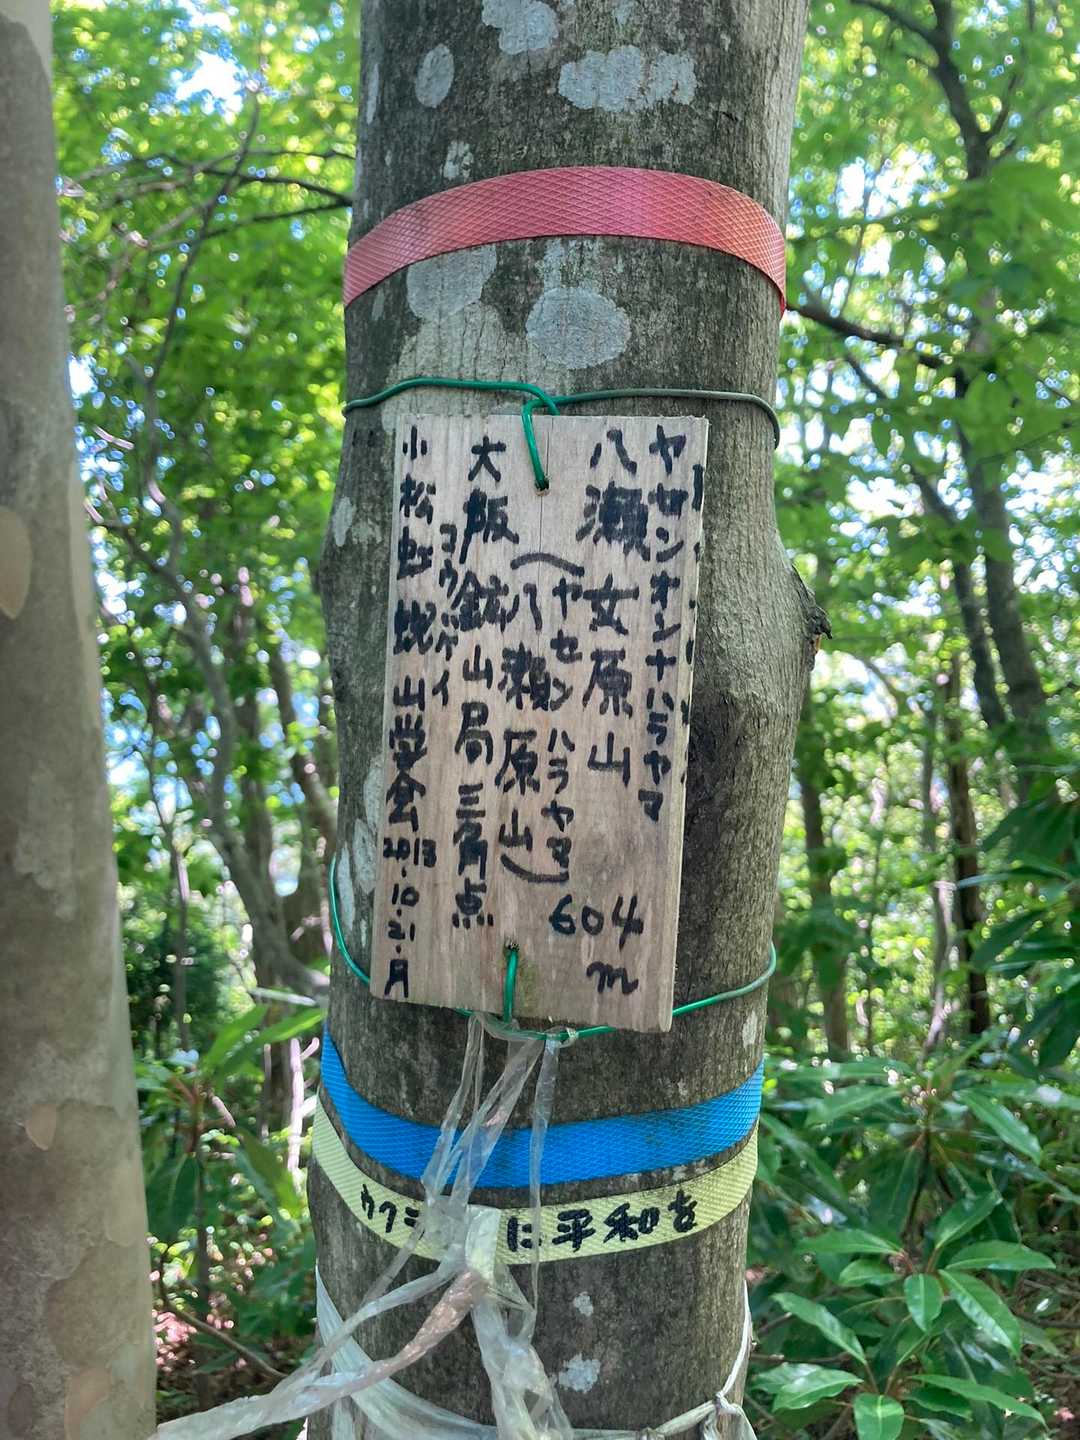 ヤセンオンナハラヤマ
八瀬女原山 604m
(ヤセンハラヤマ
(八瀬原山)
コウボイ
大阪鉱山局三角点
小松 山岳会 2013.10.21.月
に平和を